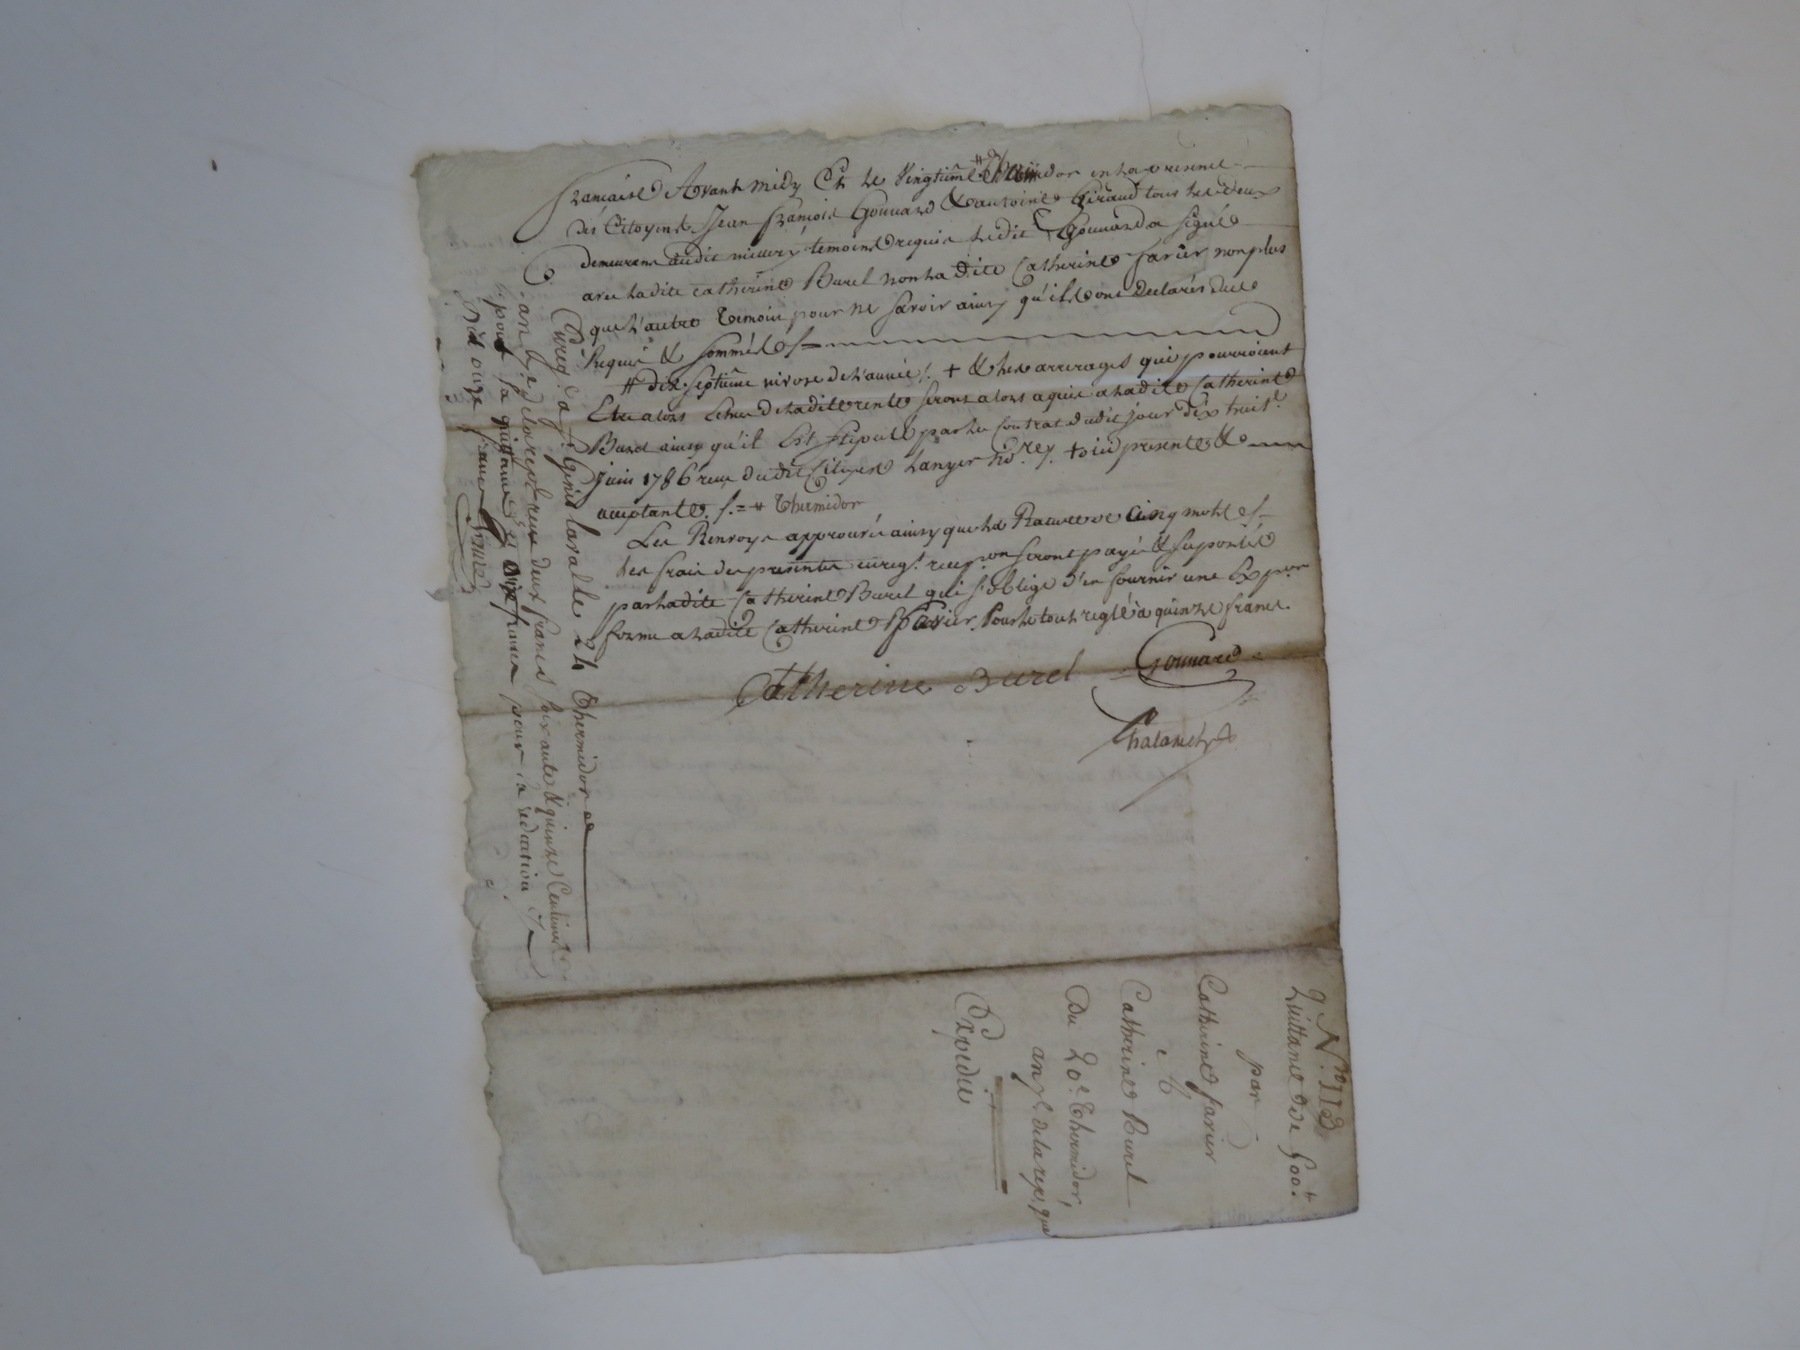 française Avant midy Et le Vingtiême # en la presence
des Citoyens Jean François Gonnard & antoine Giraud tous les deux
demeurans audit millery temoins requis ledit Gonnard a signé
avec ladite catherine Burel non ladite Catherine farier non plus
que l'autre temoin pour ne savoir ainsy qu'ils ont declarés de ce
Requis & sommés ./.
# dix septiême nivose de l'année ./. + & les arrerages qui pourroient
Etre alors Echus de ladite rente seront alors aquis a ladite Catherine
Burel ainsy qu'il Est stipulé par le Contrat dudit jour dix huit
juin 1786 recu dudit Citoyen no.re ./. + ici presente &
acceptante ./. = # Thermidor
Les Renvoys approuvés ainsy que la Rature de Cinq mots ./.
les frais des presentes enreg.t seront payés & suportés
par ladite Catherine Burel qui s'oblige d'en fournir une Exp.on
forme a ladite Catherine farier Pour le tout reglé à quinze francs.
Catherine Burel
Gonnard
Enreg.é a St Genis lavalle 24 Thermidor
an de la rep. recu deux francs soixante & quinze Centimes
pour la quittance & francs pour la
francs
N.o 113
Quittance de 600.#
par
Catherine farier
à
Catherine Burel
Du 20.e Thermidor,
an de la rep.que
Expedié